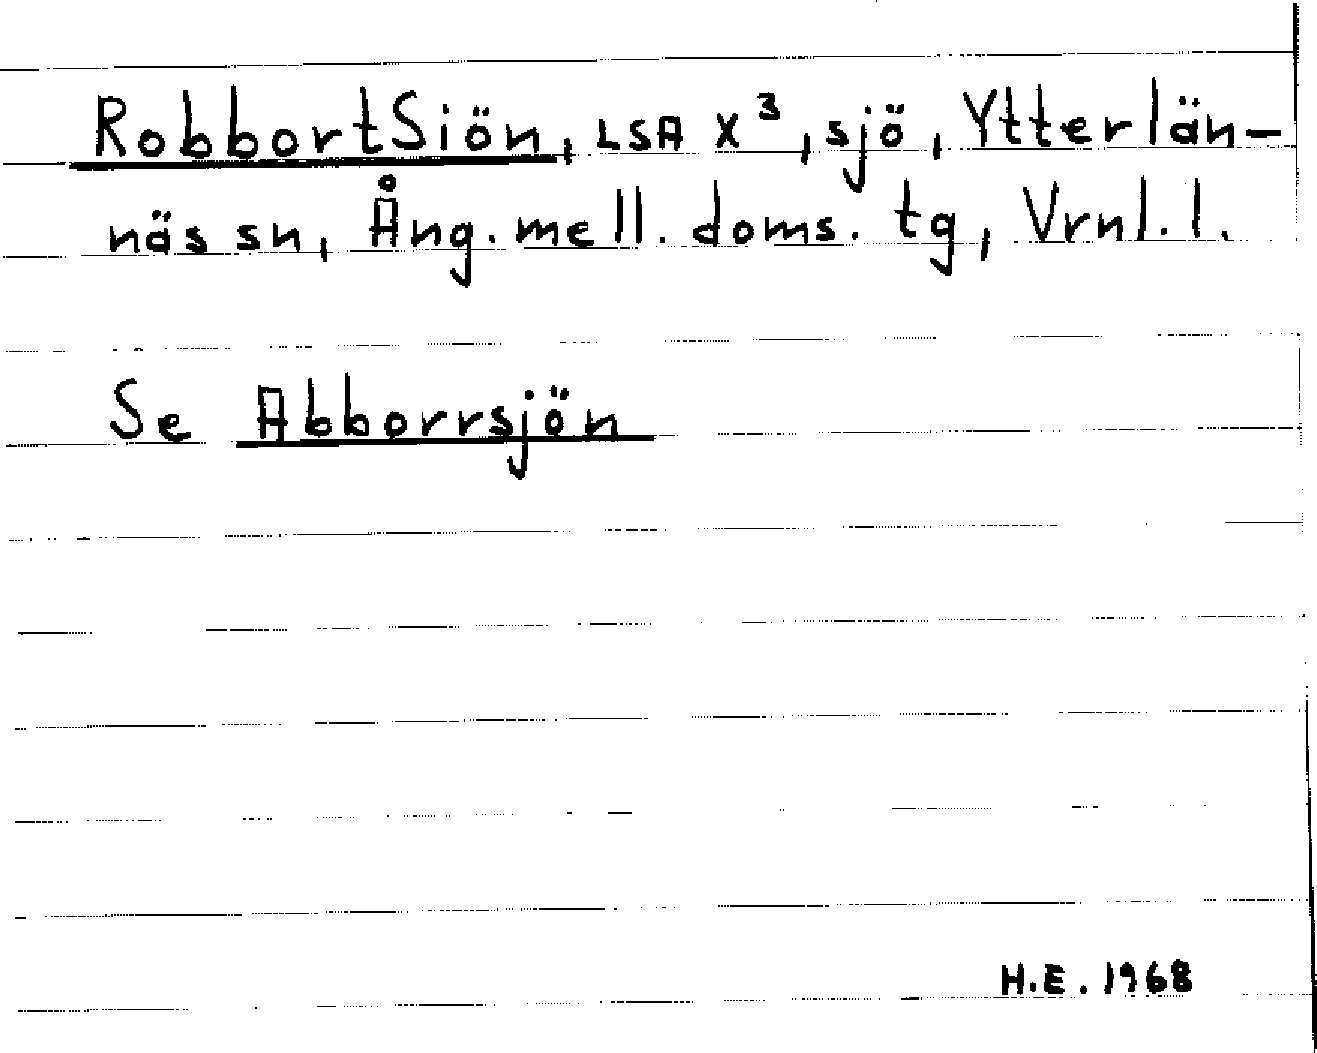 RobbortSiön, LSA X³, sjö, Ytterlän-
näs sn, Ång. mell. doms. tg, Vrnl. l.
Se Abborrsjön
H.E. 1968